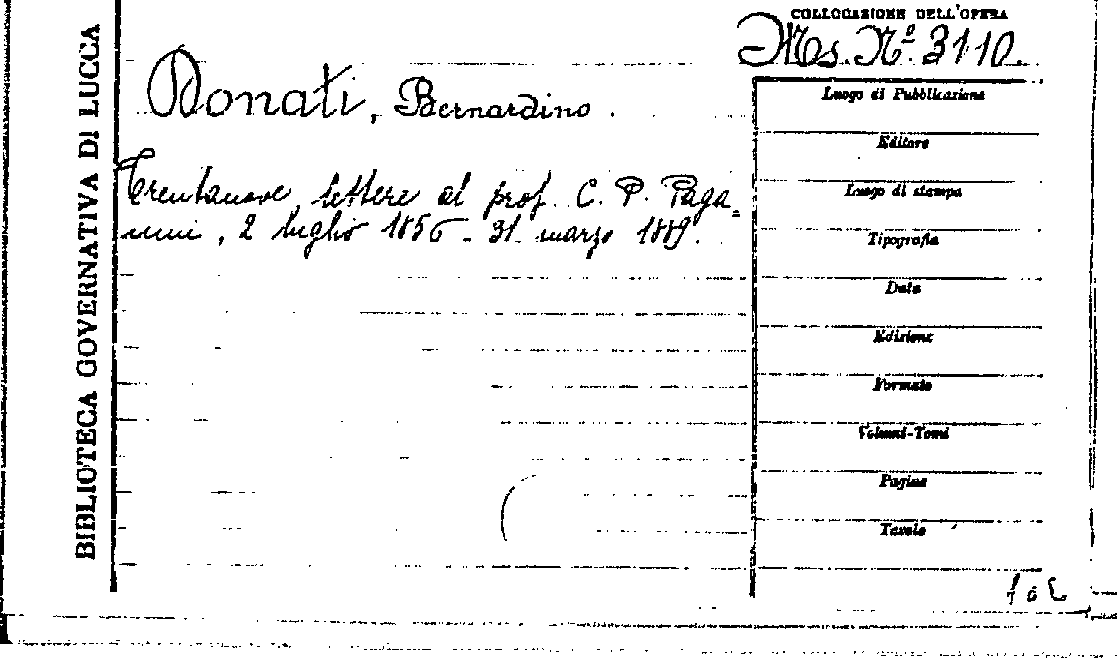 BIBLIOTECA GOVERNATIVA DI LUCCA
COLLOCAZIONE DELL'OPERA
Ms. Nº 3110
Donati, Bernardino.
Trentanove lettere al prof. C. P. Paga=
nini, 2 luglio 1856 - 31 marzo 1889.
Luogo di Pubblicazione
Editore
Luogo di stampa
Tipografia
Data
Edizione
Formato
Volumi-Tomi
Pagine
Tavole